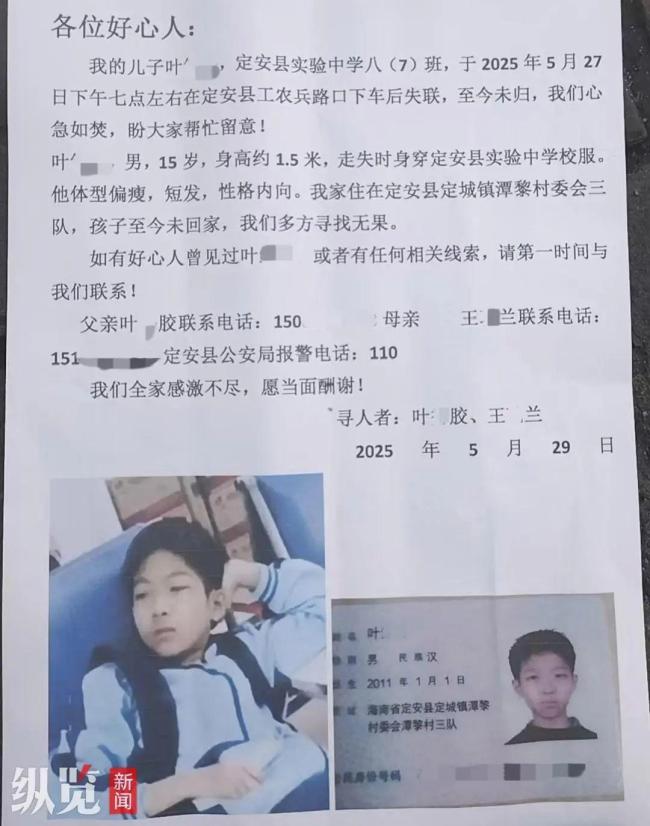 各位好心人：
我的儿子叶，定安县实验中学八（7）班，于 2025 年 5 月 27
日下午七点左右在定安县工农兵路口下车后失联，至今未归，我们心
急如焚，盼大家帮忙留意！
叶，男，15 岁，身高约 1.5 米，走失时身穿定安县实验中学校服。
他体型偏瘦，短发，性格内向。我家住在定安县定城镇潭黎村委会三
队，孩子至今未回家，我们多方寻找无果。
如有好心人曾见过叶 或者有任何相关线索，请第一时间与
我们联系！
父亲叶 胶联系电话：150 母亲 王 兰联系电话：
151 定安县公安局报警电话：110
我们全家感激不尽，愿当面酬谢！
寻人者：叶 胶、王 兰
2025 年 5 月 29 日
姓名 叶
性别 男 民族 汉
出生 2011 年 1 月 1 日
住址 海南省定安县定城镇潭黎
村委会潭黎村三队
公民身份号码
纵览新闻